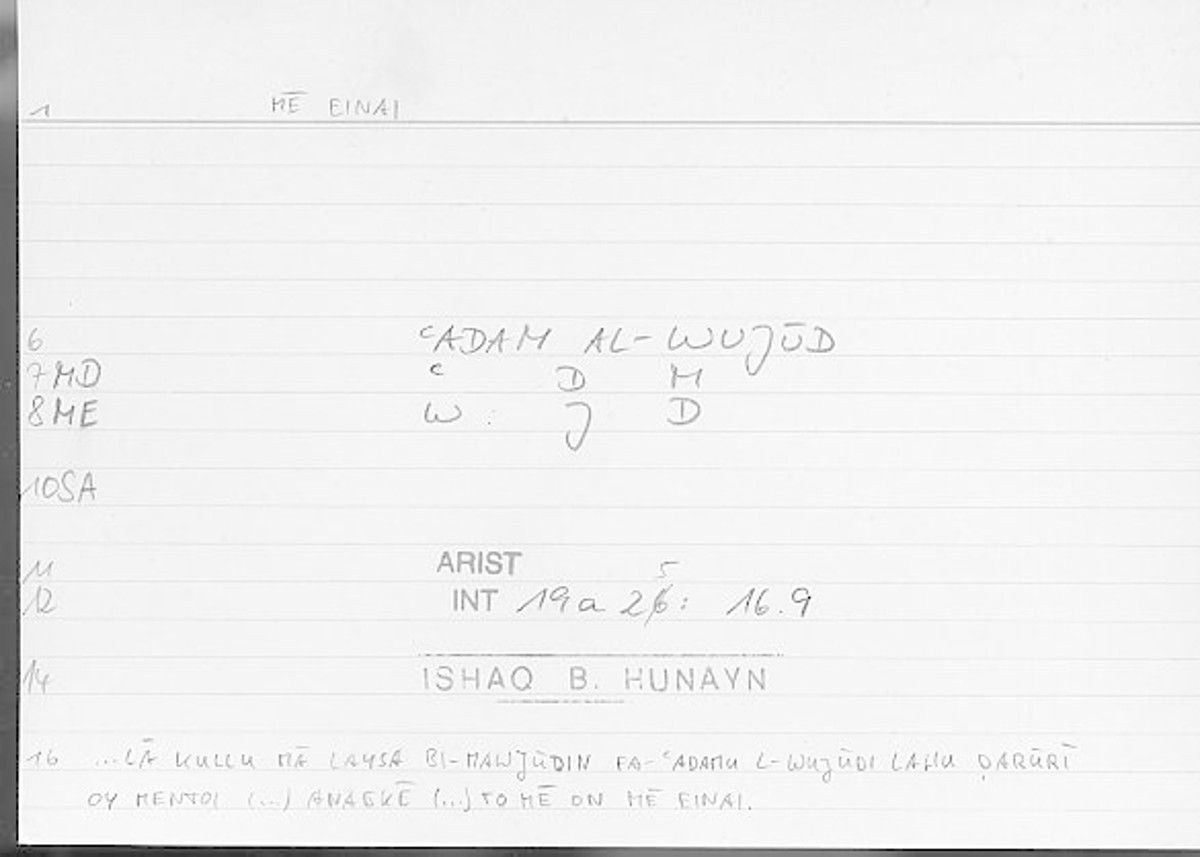 1 MĒ EINAI
6 ʿADAM AL-WUJŪD
7MD ʿ D M
8ME W : J D
10SA
11 ARIST 5
12 INT 19a 26: 16.9
14 ISHAQ B. HUNAYN
16 ...LĀ KULLU MĀ LAYSA BI-MAWJŪDIN FA-ʿADAMU L-WUJŪDI LAHU ḌARŪRĪ
OY MENTOI (...) ANAGKĒ (...) TO MĒ ON MĒ EINAI.